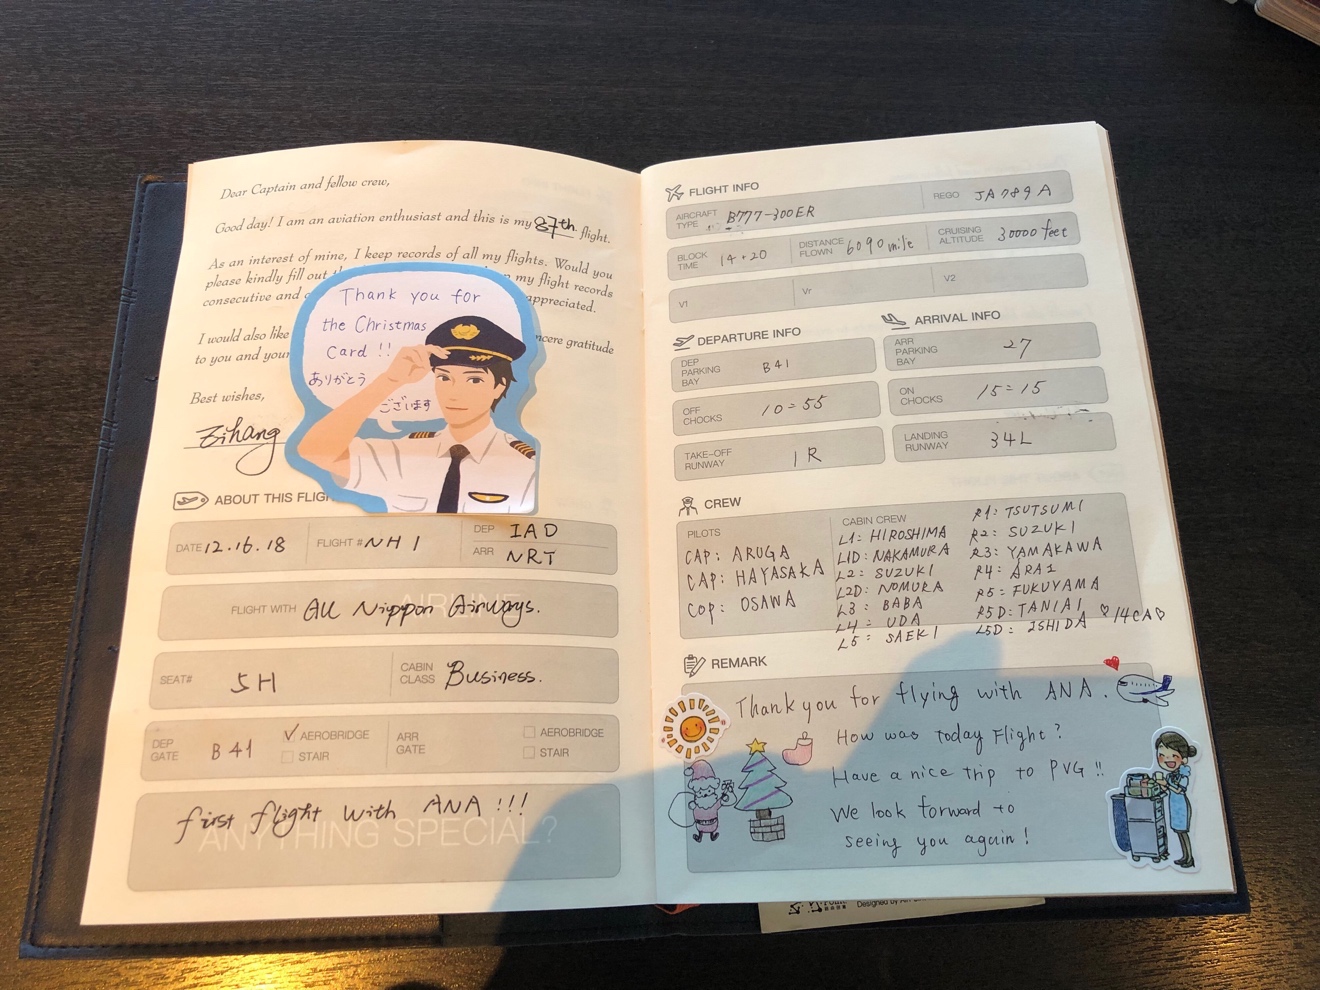 Dear Captain and fellow crew,
Good day! I am an aviation enthusiast and this is my 87th flight.
As an interest of mine, I keep records of all my flights. Would you
please kindly fill out my flight records
consecutive and appreciated.
I would also like sincere gratitude
to you and your
Best wishes,
Zihang
Thank you for
the Christmas
Card !!
ありがとう
ございます
ABOUT THIS FLIGH
DATE 12.16.18
FLIGHT # NH 1
DEP IAD
ARR NRT
AIRLINE
FLIGHT WITH All Nippon Airways.
SEAT# 5H
CABIN CLASS Business.
DEP GATE B 41
✓ AEROBRIDGE
STAIR
ARR GATE
AEROBRIDGE
STAIR
first flight with ANA !!!
ANYTHING SPECIAL?
FLIGHT INFO
AIRCRAFT TYPE B777-300ER
REGO JA789A
BLOCK TIME 14+20
DISTANCE FLOWN 6090 mile
CRUISING ALTITUDE 30000 feet
V1
Vr
V2
DEPARTURE INFO
DEP PARKING BAY B41
OFF CHOCKS 10=55
TAKE-OFF RUNWAY 1R
ARRIVAL INFO
ARR PARKING BAY 27
ON CHOCKS 15=15
LANDING RUNWAY 34L
CREW
PILOTS
CAP: ARUGA
CAP: HAYASAKA
COP: OSAWA
CABIN CREW
L1: HIROSHIMA
L1D: NAKAMURA
L2: SUZUKI
L2D: NOMURA
L3: BABA
L4: UDA
L5: SAEKI
R1: TSUTSUMI
R2: SUZUKI
R3: YAMAKAWA
R4: ARAI
R5: FUKUYAMA
R5D: TANIAI
L5D: ISHIDA ♡14CA♡
REMARK
Thank you for flying with ANA.
How was today Flight?
Have a nice trip to PVG !!
We look forward to
seeing you again!
Designed by